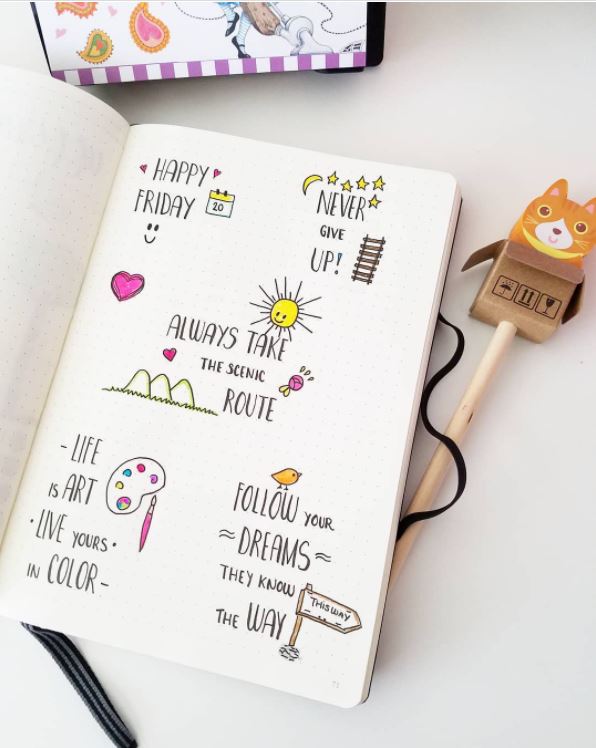 HAPPY
FRIDAY
20
NEVER
GIVE
UP!
ALWAYS TAKE
THE SCENIC
ROUTE
- LIFE
IS ART
• LIVE YOURS •
IN COLOR -
FOLLOW YOUR
≈ DREAMS ≈
THEY KNOW
THE WAY
THIS WAY